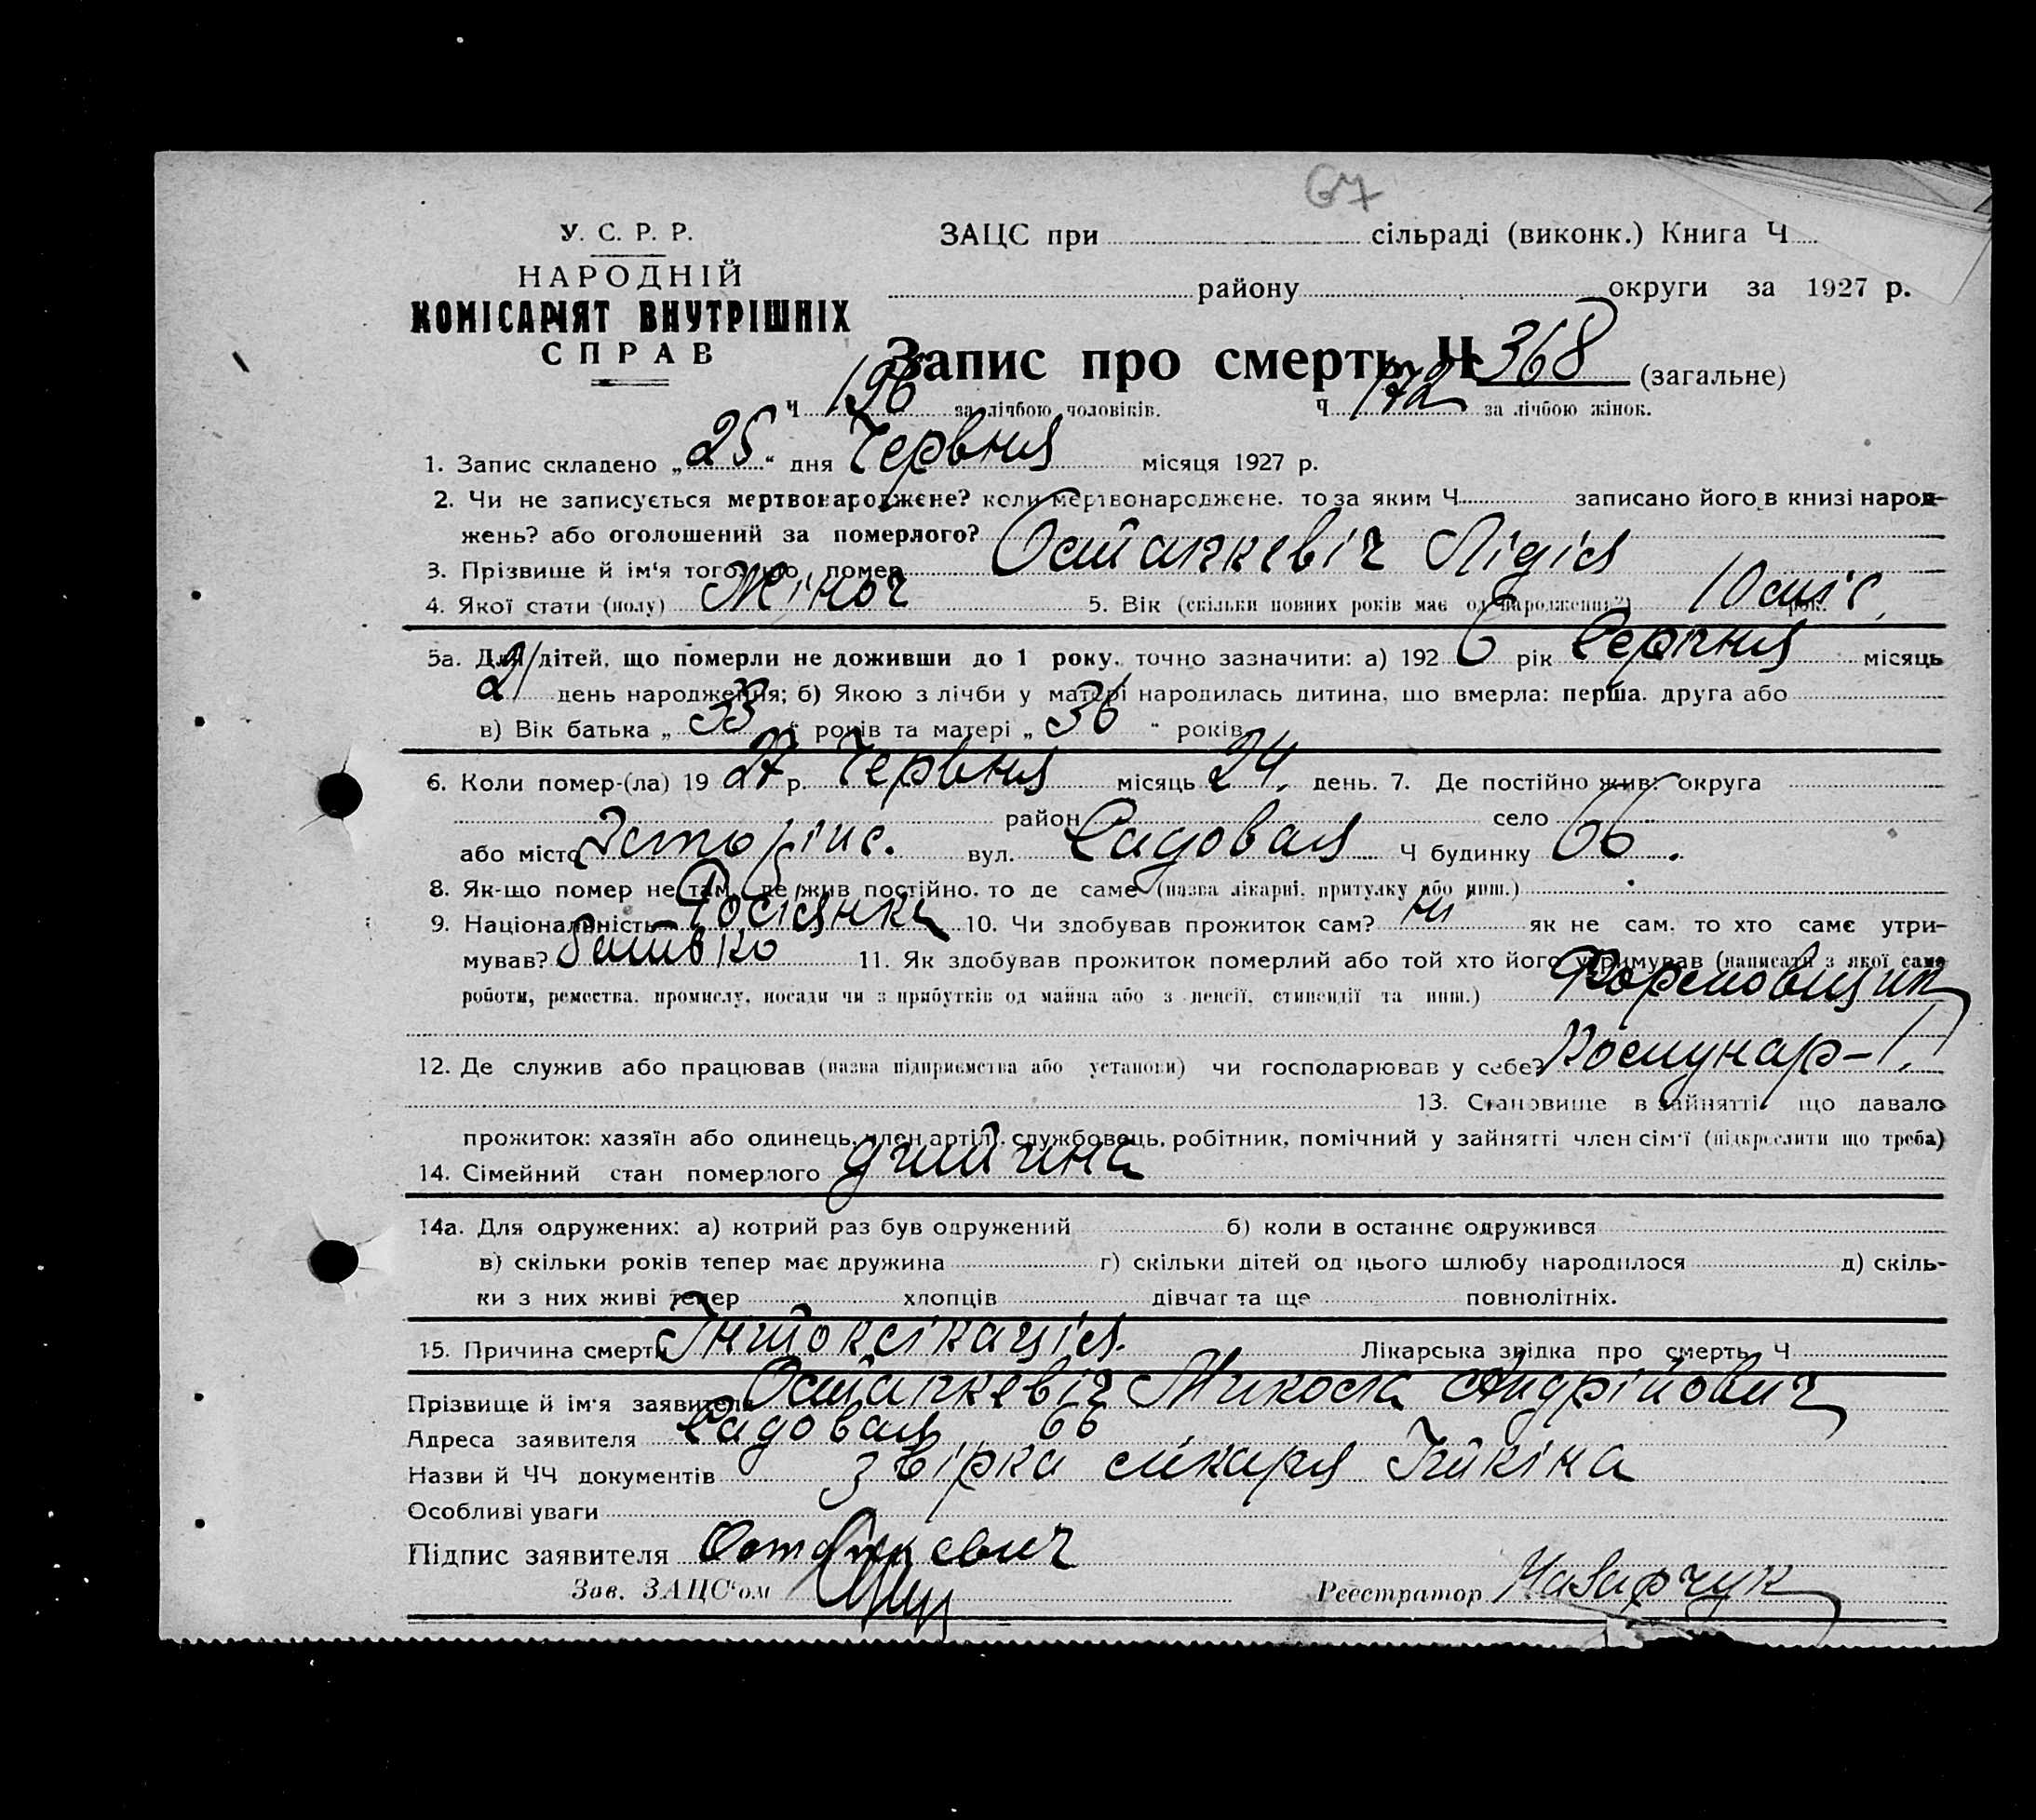 67
У. С. Р. Р.
НАРОДНІЙ
КОМІСАРІЯТ ВНУТРІШНІХ
СПРАВ
ЗАЦС при сільраді (виконк.) Книга Ч
району округи за 1927 р.
Запис про смерть Ч 368 (загальне)
Ч 196 за лічбою чоловіків. Ч 172 за лічбою жінок.
1. Запис складено „25“ дня Червня місяця 1927 р.
2. Чи не записується мертвонароджене? коли мертвонароджене, то за яким Ч записано його в книзі народ-
жень? або оголошений за померлого?
3. Прізвище й ім'я того, що помер Остапкевіч Лідія
4. Якої стати (полу) Жіноч 5. Вік (скільки повних років має од народження?) 10 міс рок.
5а. Для дітей, що померли не доживши до 1 року, точно зазначити: а) 1926 рік Серпня місяць
21 день народження; б) Якою з лічби у матері народилась дитина, що вмерла: перша, друга або
в) Вік батька „33“ років та матері „36“ років
6. Коли помер-(ла) 1927 р. Червня місяць 24. день. 7. Де постійно жив: округа
район село
або місто вул. Садовая Ч будинку 66.
8. Як-що помер не там, де жив постійно, то де саме (назва лікарні, притулку або инш.)
9. Національність Росіянка 10. Чи здобував прожиток сам? ні як не сам, то хто саме утри-
мував? батько 11. Як здобував прожиток померлий або той хто його утримував (написати з якої саме
роботи, ремества, промислу, посади чи з прибутків од майна або з пенсії, стипендії та инш.) Формовщик
12. Де служив або працював (назва підприємства або установи) чи господарював у себе? Комунар-1.
13. Становище в зайнятті, що давало
прожиток: хазяїн або одинець, член артілі, службовець, робітник, помічний у зайнятті член сім'ї (підкреслити що треба)
14. Сімейний стан померлого дитина
14а. Для одружених: а) котрий раз був одружений б) коли в останнє одружився
в) скільки років тепер має дружина г) скільки дітей од цього шлюбу народилося д) скіль-
ки з них живі тепер хлопців дівчат та ще повнолітніх.
15. Причина смерти Інтоксікація. Лікарська звідка про смерть Ч
Прізвище й ім'я заявителя Остапкевіч Микола Андрійович
Адреса заявителя Садовая 66
Назви й ЧЧ документів звірка лікаря
Особливі уваги
Підпис заявителя Остапкевич
Зав. ЗАЦС'ом
Реєстратор Назарчук